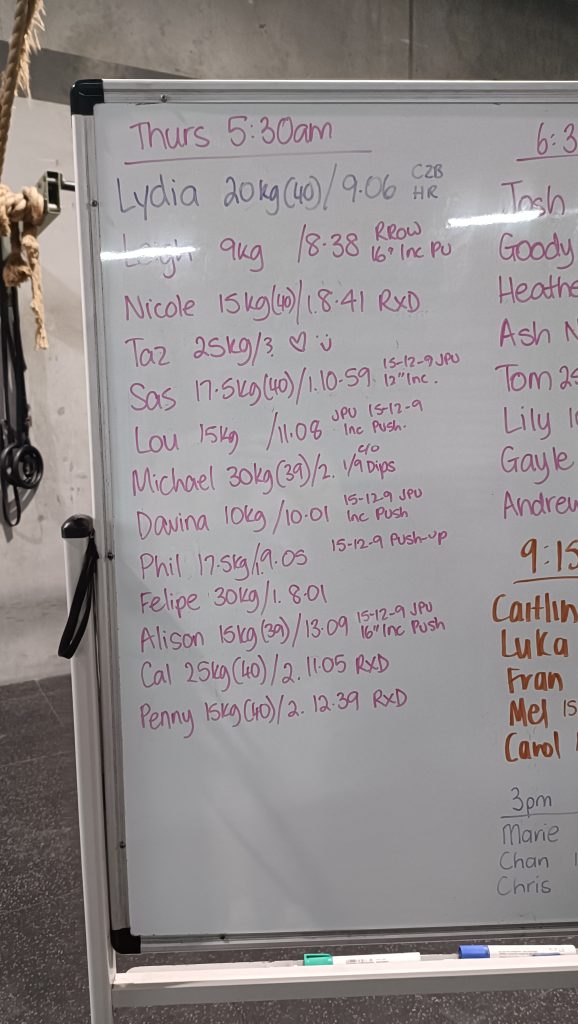 Thurs 5:30am
Lydia 20kg(40)/9.06 C2B
HR
Leigh 9kg /8.38 RROW
16" Inc PU
Nicole 15kg(40)/1.8.41 RxD
Taz 25kg/3. ♡ ü
Sas 17.5kg(40)/1.10.59 15-12-9 JPU
12" Inc.
Lou 15kg /11.08 JPU 15-12-9
Inc Push.
Michael 30kg(39)/2. 1/9 Dips
Davina 10kg/10.01 15-12-9 JPU
Inc Push
Phil 17.5kg/1.9.05 15-12-9 Push-up
Felipe 30kg/1. 8.01
Alison 15kg(39)/13.09 15-12-9 JPU
16" Inc Push
Cal 25kg(40)/2. 11.05 RxD
Penny 15kg(40)/2. 12.39 RxD
6:3
Josh
Goody
Heathe
Ash N
Tom 25
Lily 1
Gayle
Andrew
9:15
Caitlin
Luka
Fran
Mel 15
Carol
3pm
Marie
Chan 1
Chris